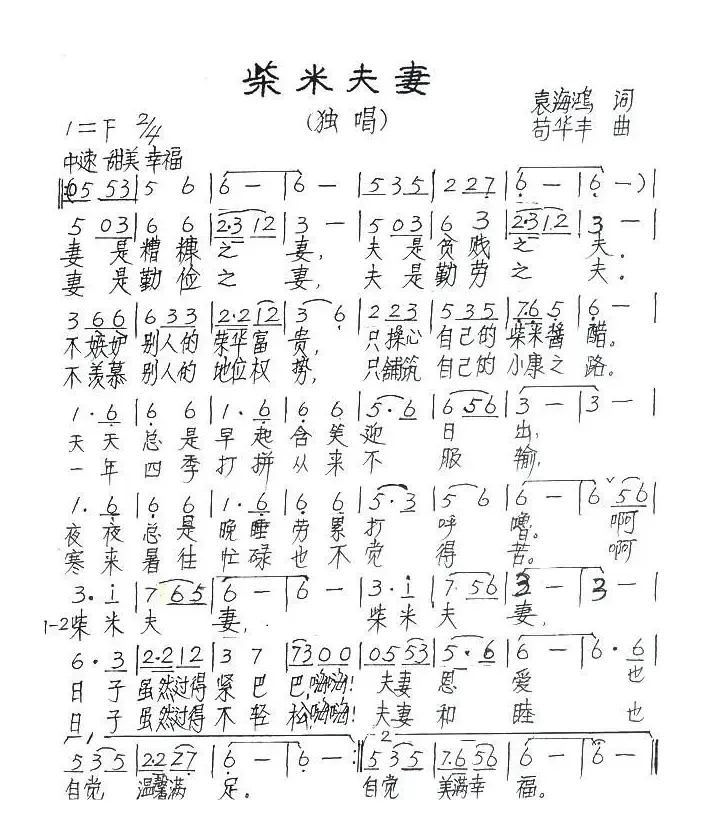 柴米夫妻
(独唱)
袁海鸿 词
苟华丰 曲
1=F 2/4
中速 甜美 幸福
(05 53 | 5 6 | 6 - | 6 - | 535 | 227 | 6 - | 6 - ) |
5 03 | 6 6 | 2·3 12 | 3 - | 5 03 | 6 3 | 2·3 12 | 3 - |
妻 是 糟 糠 之 妻, 夫 是 贫 贱 之 夫。
妻 是 勤 俭 之 妻, 夫 是 勤 劳 之 夫。
3 66 | 6 33 | 2·2 12 | 3 6 | 2 23 | 5 35 | 7·6 5 | 6 - |
不嫉妒 别人的 荣华富 贵, 只操心 自己的 柴米酱 醋。
不羡慕 别人的 地位权 势, 只铺筑 自己的 小康之 路。
1· 6 | 6 6 | 1· 6 | 6 6 | 5·6 | 6 56 | 3 - | 3 - |
天 天 总 是 早 起 含 笑 迎 日 出,
一 年 四 季 打 拼 从 来 不 服 输,
1· 6 | 6 6 | 1· 6 | 6 6 | 5·3 | 5 6 | 6 - | 6 ˅56 |
夜 夜 总 是 晚 睡 劳 累 打 呼 噜。 啊
寒 来 暑 往 忙 碌 也 不 觉 得 苦。 啊
3· i | 7 65 | 6 - | 6 - | 3· i | 7· 56 | 3 - | 3 - |
1-2柴 米 夫 妻, 柴 米 夫 妻,
6· 3 | 2·2 12 | 3 7 | 7300 | 05 53 | 5· 6 | 6 - | 6· 6 |
日 子 虽然过得 紧 巴 巴,嗨嗨! 夫妻 恩 爱 也
日 子 虽然过得 不 轻 松,嗨嗨! 夫妻 和 睦 也
1, 2
535 | 2·2 27 | 6 - | 6 - :‖ 535 | 7·6 56 | 6 - | 6 - ‖
自觉 温馨满 足。 自觉 美满幸 福。